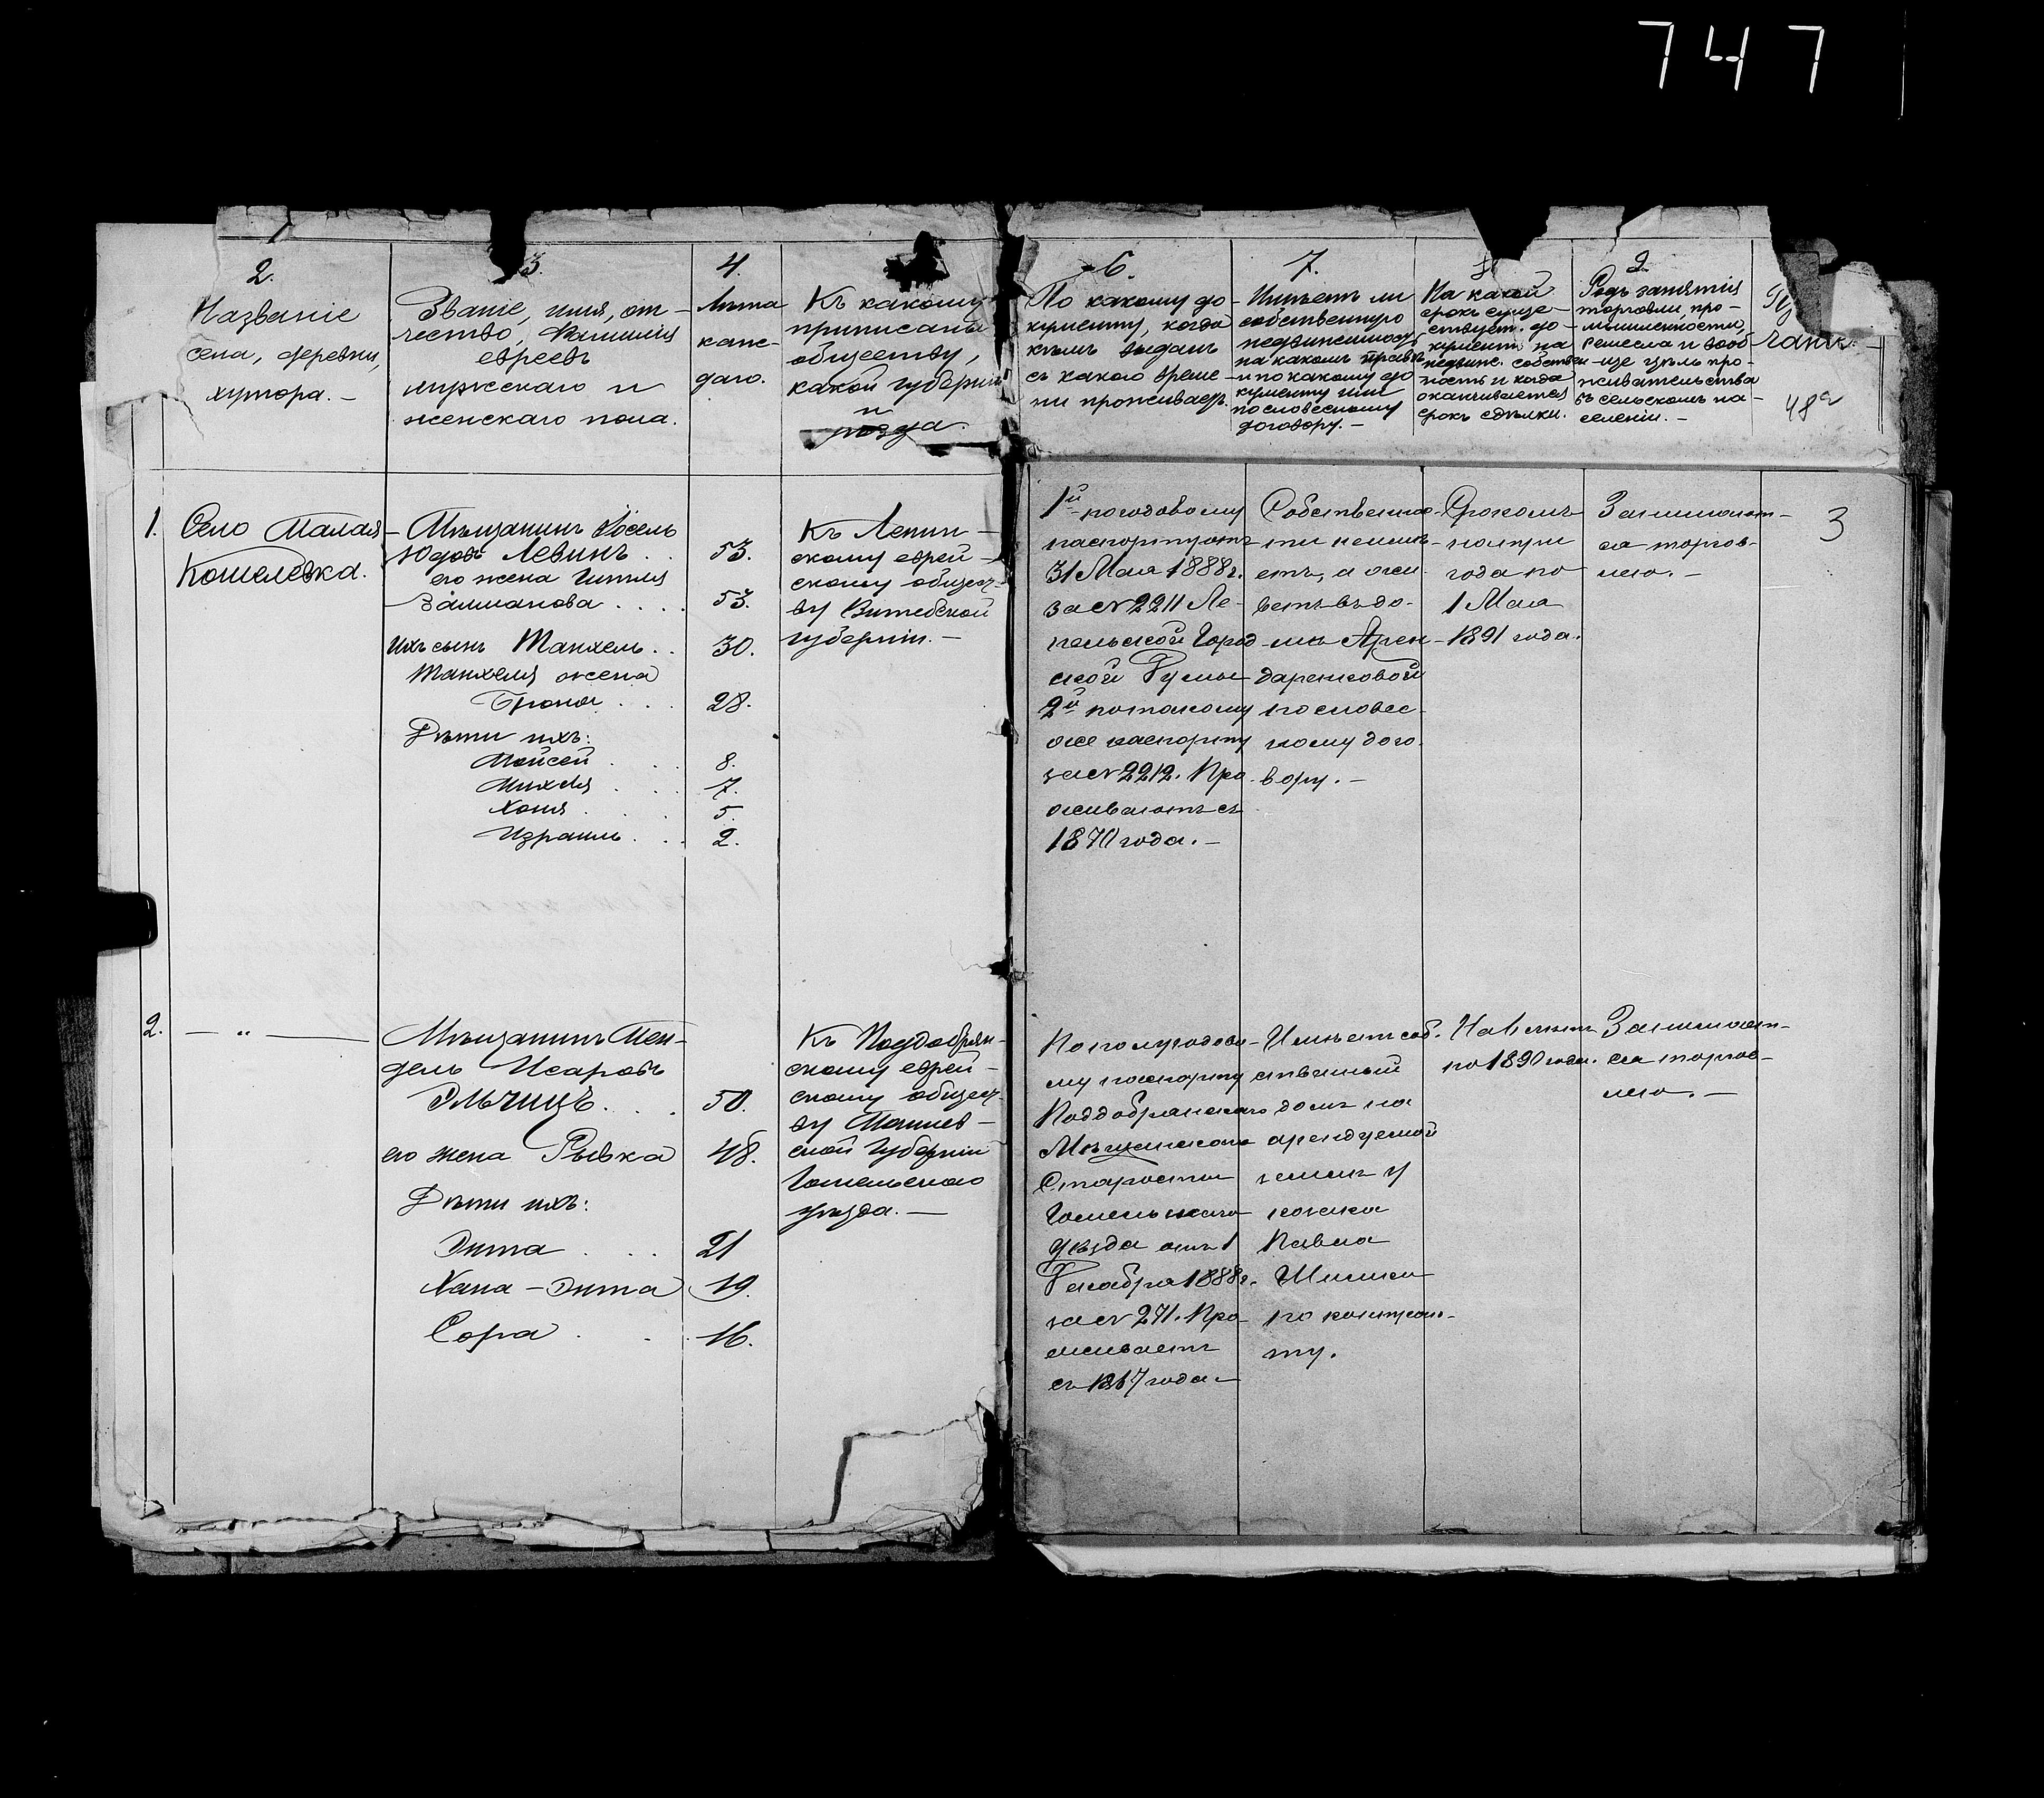 747
2.
Названіе
села, деревни,
хутора. —
3.
Званіе, имя, от-
чество, Фамилія
евреевъ
мужскаго и
женскаго пола.
4.
Лѣта
каж-
даго.
Къ какому
приписаны
обществу,
какой губерніи
и
уѣзда
6.
По какому до-
кументу, когда
кѣмъ выданъ
съ какого време-
ни проживаетъ.
7.
Имѣетъ ли
собственную
недвижимость
на какомъ правѣ
и по какому до
кументу или
по словесному
договору. —
На какой
срокъ суще-
ствует. до-
кументъ на
недвиж. собствен-
ность и когда
оканчивается
срокъ сдѣлки.
9.
Родъ занятія
торговли, про-
мышленности,
ремесла и вооб-
ще цѣль про-
живательства
въ сельскомъ на-
селеніи. —
чанiе. —
48а
1.
Село Малая
Кошелевка.
Мѣщанинъ Іосель
Юдовъ Левинъ . . 53.
его жена Гитля
Залманова . . . . 53.
Ихъ сынъ Танхель . . 30.
Танхеля жена
Броня . . . 28.
Дѣти ихъ:
Мойсей . . . 8.
Михля . . . 7.
Хоня . . . . 5.
Израиль . . . 2.
Къ Лепин-
скому еврей-
скому общест-
ву Витебской
губерніи. —
1й погодовому
паспорту отъ
31 Мая 1888 г.
за № 2211 Ле-
пельской Город
ской Думы
2й по такому
же паспорту
за № 2212. Про
живаютъ съ
1870 года. —
Собственно-
сти неимѣ-
етъ, а жи-
ветъ въ до-
мѣ Арен-
даренковой
по словес-
ному дого-
вору. —
Срокомъ
на три
года по
1 Мая
1891 года.
Занимает-
ся торгов-
лею. —
3
2.
— „ —
Мѣщанинъ Мен-
дель Исаровъ
Эльчицъ . . . 50.
его жена Рывка 48.
Дѣти ихъ:
Эита . . . . 21
Хана-Эита 19.
Сора . . 16.
Къ Поддобрян-
скому еврей-
скому общест-
ву Могилев-
ской губерніи
Гомельскаго
уѣзда. —
По полугодово-
му паспорту
Поддобрянскаго
Мѣщанскаго
Старосты
Гомельскаго
уѣзда отъ 1
Декабря 1888 г.
за № 271. Про
живаетъ
съ 1867 года —
Имѣетъ соб-
ственный
домъ на
арендуемой
землѣ у
козака
Павла
Шишки
по контрак-
ту.
по 1890 года.
Занимает-
ся торгов-
лею. —